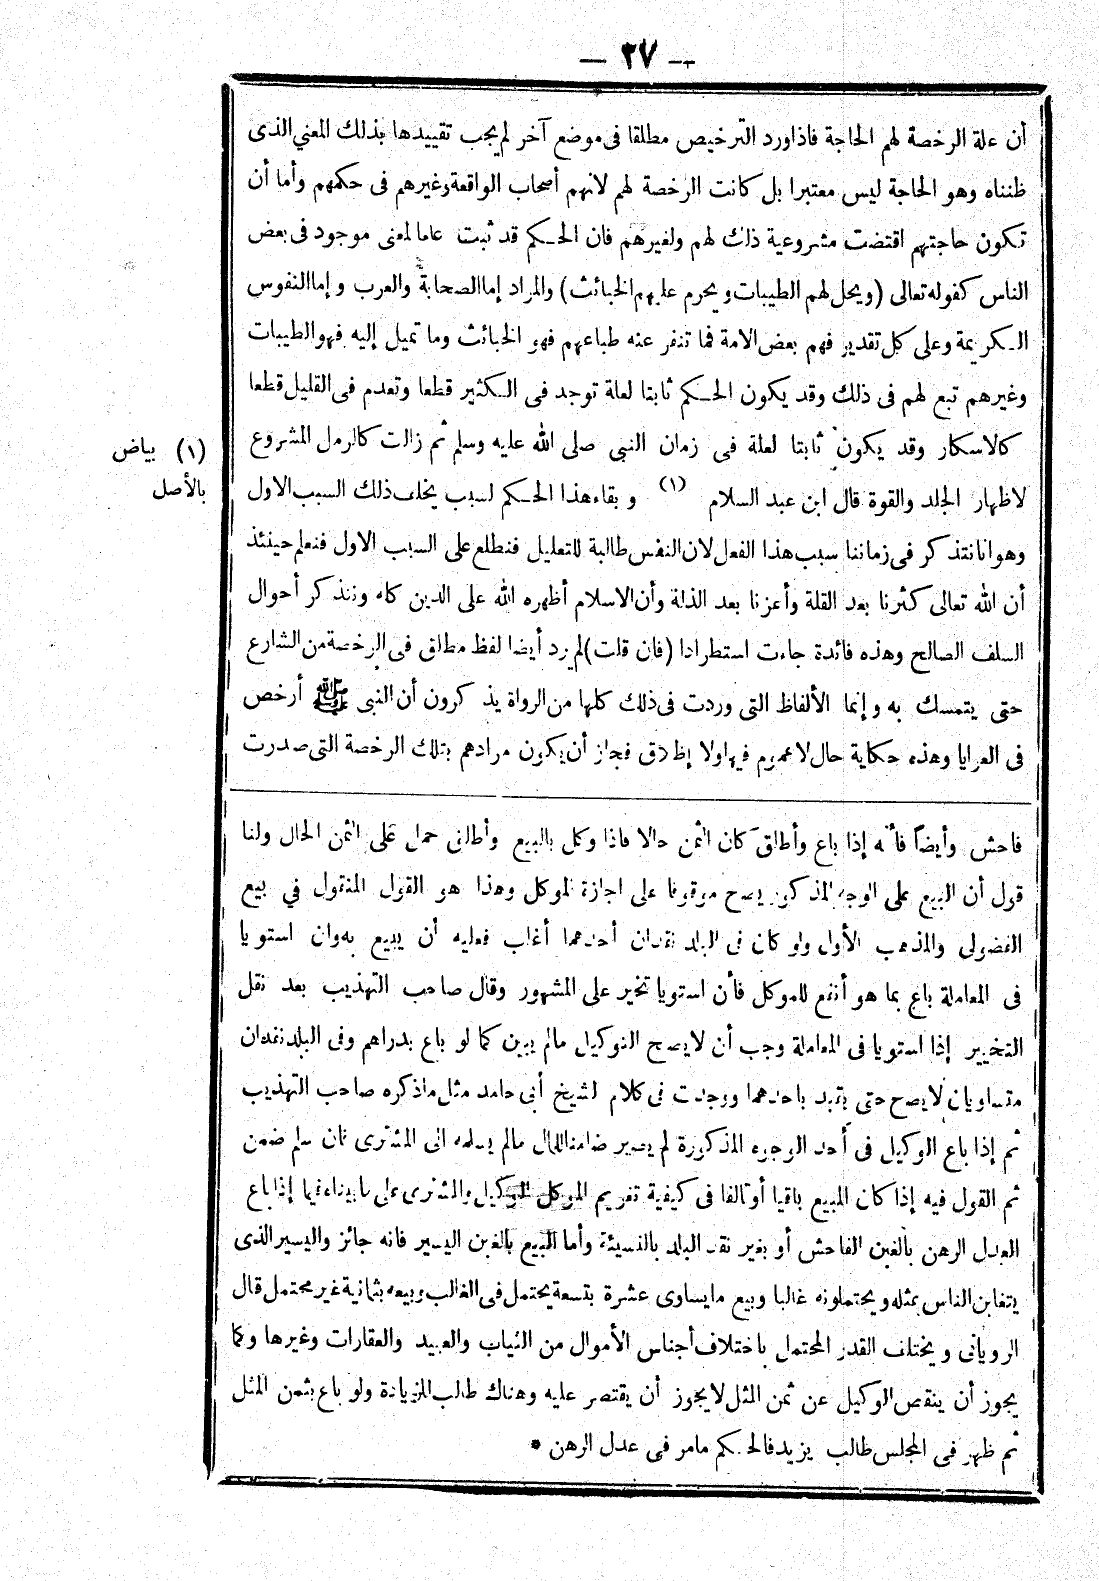 — ٢٧ —
أن علة الرخصة لهم الحاجة فاذاورد الترخيص مطلقا فى موضع آخر لم يجب تقييدها بذلك المعني الذى
ظنناه وهو الحاجة ليس معتبرا بل كانت الرخصة لهم لانهم أصحاب الواقعة وغيرهم فى حكمهم وأما أن
تكون حاجتهم اقتضت مشروعية ذلك لهم ولغيرهم فان الحكم قد ثبت عاما لمعنى موجود فى بعض
الناس كقوله تعالى (ويحل لهم الطيبات ويحرم عليهم الخبائث) والمراد إما الصحابة والعرب وإما النفوس
الكريمة وعلى كل تقدير فهم بعض الامة فما تنفر عنه طباعهم فهو الخبائث وما تميل إليه فهو الطيبات
وغيرهم تبع لهم فى ذلك وقد يكون الحكم ثابتا لعلة توجد فى الكثير قطعا وتعدم فى القليل قطعا
كالاسكار وقد يكون ثابتا لعلة فى زمان النبى صلى الله عليه وسلم ثم زالت كالرمل المشروع
لاظهار الجلد والقوة قال ابن عبد السلام (١) وبقاء هذا الحكم لسبب يخلف ذلك السبب الاول
(١) بياض
بالأصل
وهو انا نتذكر فى زماننا سبب هذا الفعل لان النفس طالبة للتعليل فنطلع على السبب الاول فنعلم حينئذ
أن الله تعالى كثرنا بعد القلة وأعزنا بعد الذلة وأن الاسلام أظهره الله على الدين كله ونتذكر أحوال
السلف الصالح وهذه فائدة جاءت استطرادا (فان قلت) لم يرد أيضا لفظ مطلق فى الرخصة من الشارع
حتى يتمسك به وإنما الألفاظ التى وردت فى ذلك كلها من الرواة يذكرون أن النبى ﷺ أرخص
فى العرايا وهذه حكاية حال لا عموم فيها ولا إطلاق فجاز أن يكون مرادهم بتلك الرخصة التى صدرت
فاحش وأيضاً فأنه إذا باع وأطلق كان الثمن حالا فاذا وكل بالبيع وأطلق حمل على الثمن الحال ولنا
قول أن البيع على الوجه المذكور يصح موقوفا على اجازة الموكل وهذا هو القول المنقول في بيع
الفضولى والمذهب الأول ولو كان فى البلد نقدان أحدهما أغلب فعليه أن يبيع به وان استويا
فى المعاملة باع بما هو أنفع للموكل فأن استويا تخير على المشهور وقال صاحب التهذيب بعد نقل
التخيير إذا استويا فى المعاملة وجب أن لا يصح التوكيل مالم يبين كما لو باع بدراهم وفى البلد نقدان
متساويان لا يصح حتى يقيد باحدهما ووجدت فى كلام الشيخ أبى حامد مثل ماذكره صاحب التهذيب
ثم إذا باع الوكيل فى أحد الوجوه المذكورة لم يصير ضامنا للمال مالم يسلمه الى المشترى فان سلم ضمن
ثم القول فيه إذا كان المبيع باقيا أو تالفا فى كيفية تغريم الموكل الوكيل والمشترى على ما بيناه فيما إذا باع
العدل الرهن بالغبن الفاحش أو بغير نقد البلد بالنسيئة وأما البيع بالغبن اليسير فانه جائز واليسير الذى
يتغابن الناس بمثله ويحتملونه غالبا وبيع ما يساوى عشرة بتسعة يحتمل فى الغالب وبيعه بثمانية غير محتمل قال
الرويانى ويختلف القدر المحتمل باختلاف أجناس الأموال من الثياب والعبيد والعقارات وغيرها وكما
يجوز أن ينقص الوكيل عن ثمن المثل لا يجوز أن يقتصر عليه وهناك طالب المزيادة ولو باع بثمن المثل
ثم ظهر فى المجلس طالب يزيد فالحكم مامر فى عدل الرهن *